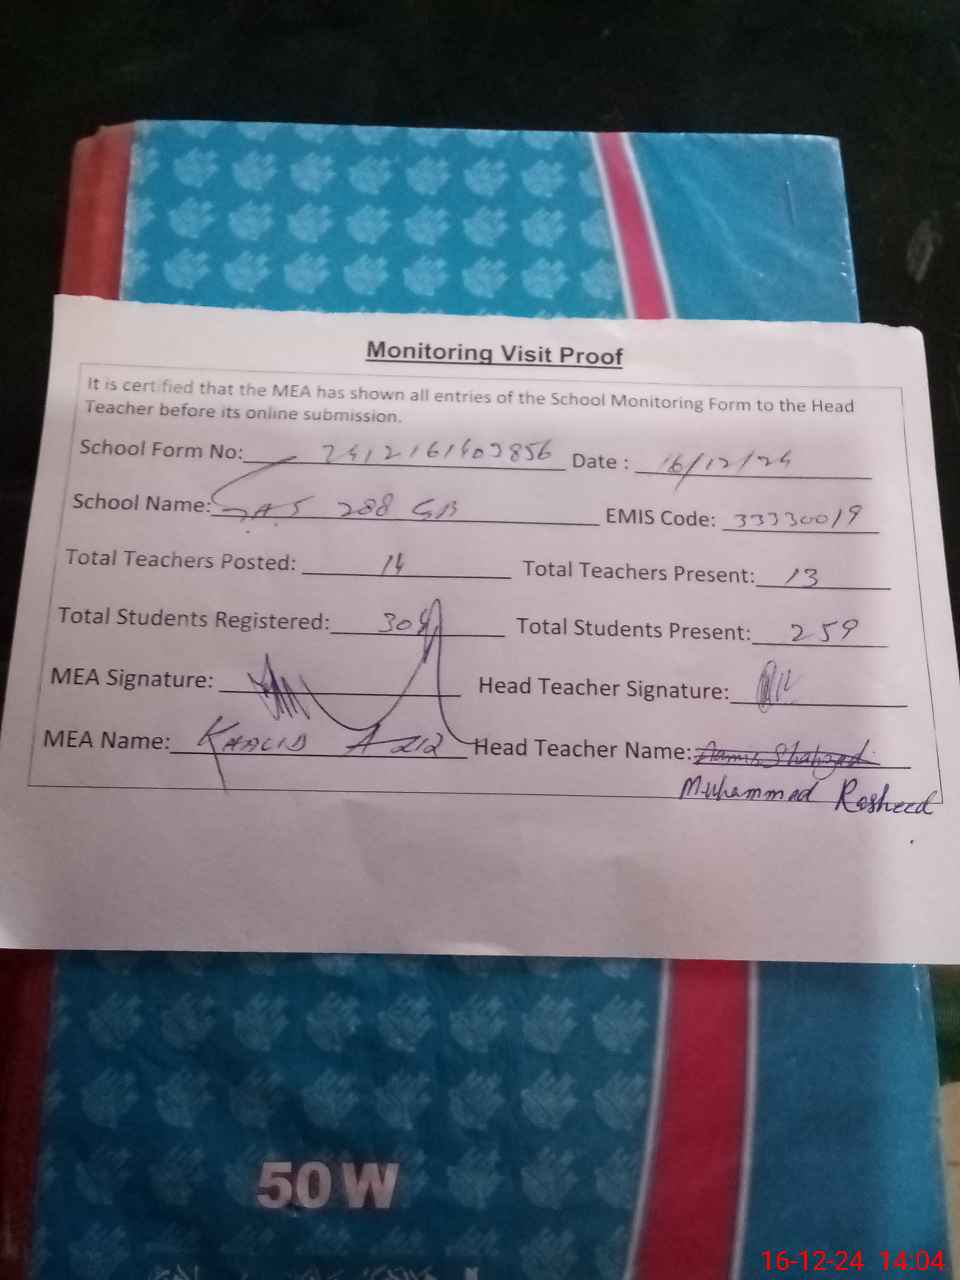 Monitoring Visit Proof
It is certified that the MEA has shown all entries of the School Monitoring Form to the Head
Teacher before its online submission.
School Form No: 2412161402856 Date : 16/12/24
School Name: 288 GB EMIS Code: 33330019
Total Teachers Posted: 14 Total Teachers Present: 13
Total Students Registered: 308 Total Students Present: 259
MEA Signature: Head Teacher Signature:
MEA Name: Khalid Aziz Head Teacher Name:
Muhammad Rasheed
50 W
16-12-24 14:04